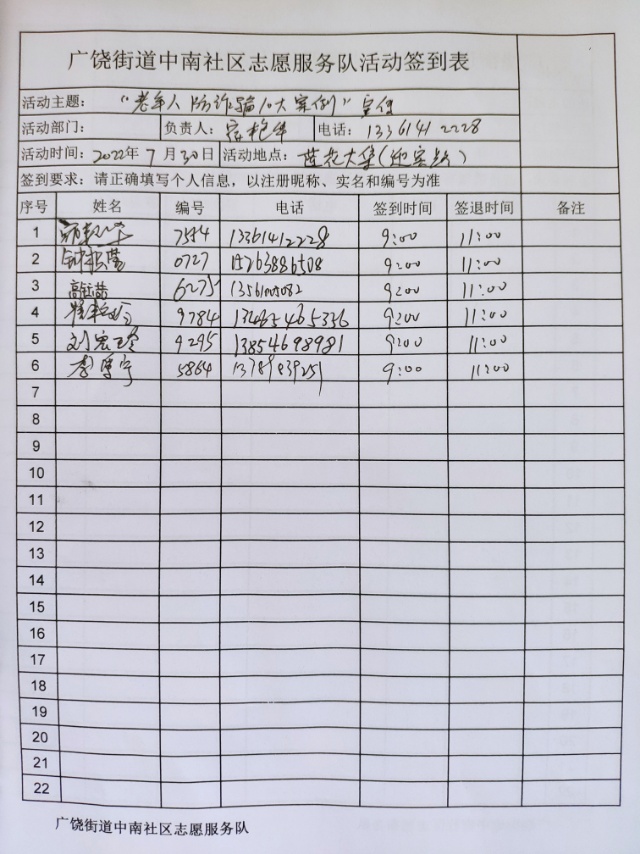 广饶街道中南社区志愿服务队活动签到表
活动主题： “老年人防诈骗10大案例”宣传
活动部门： 负责人： 电话：13361412228
活动时间：2022年7月30日 活动地点：莲花大集
签到要求：请正确填写个人信息，以注册昵称、实名和编号为准
序号 姓名 编号 电话 签到时间 签退时间 备注
1 7554 13361412228 9:00 11:00
2 0727 15263886508 9:00 11:00
3 6275 13561005082 9:00 11:00
4 9784 13465465336 9:00 11:00
5 刘宏玲 9295 13854698981 9:00 11:00
6 5864 9:00 11:00
7
8
9
10
11
12
13
14
15
16
17
18
19
20
21
22
广饶街道中南社区志愿服务队